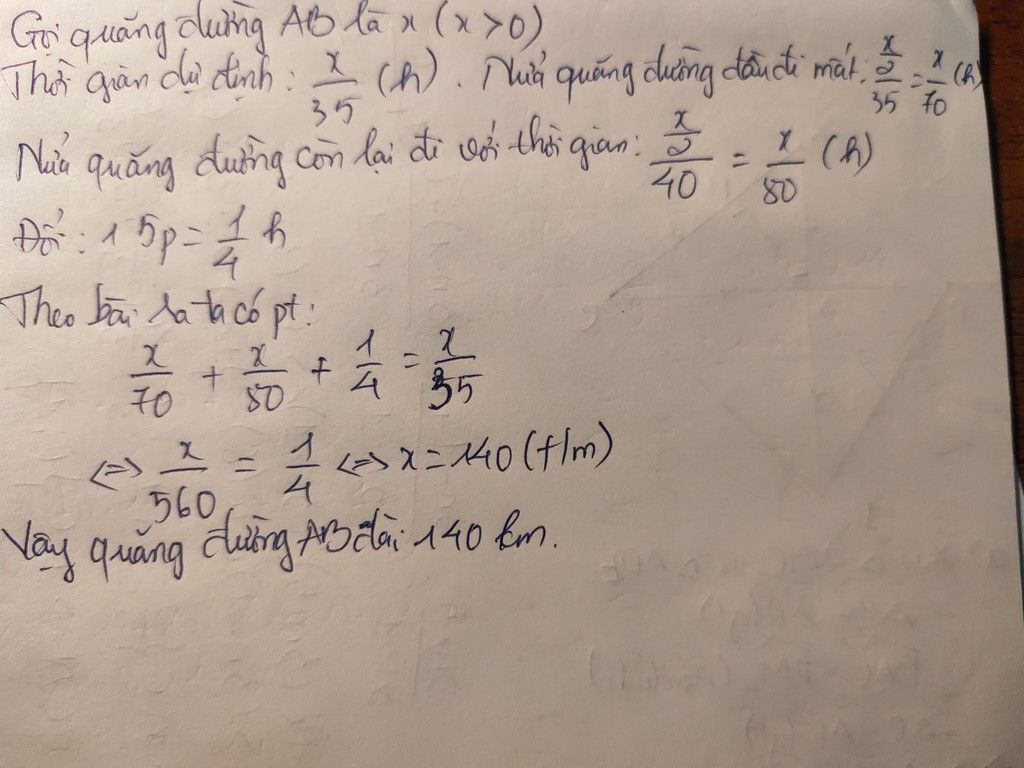 Gọi quãng đường AB là x (x > 0)
Thời gian dự định: x/35 (h). Nửa quãng đường đầu đi mất: (x/2)/35 = x/70 (h)
Nửa quãng đường còn lại đi với thời gian: (x/2)/40 = x/80 (h)
Đổi: 15p = 1/4 h
Theo bài ra ta có pt:
x/70 + x/80 + 1/4 = x/35
<=> x/560 = 1/4 <=> x = 140 (t/m)
Vậy quãng đường AB dài 140 km.